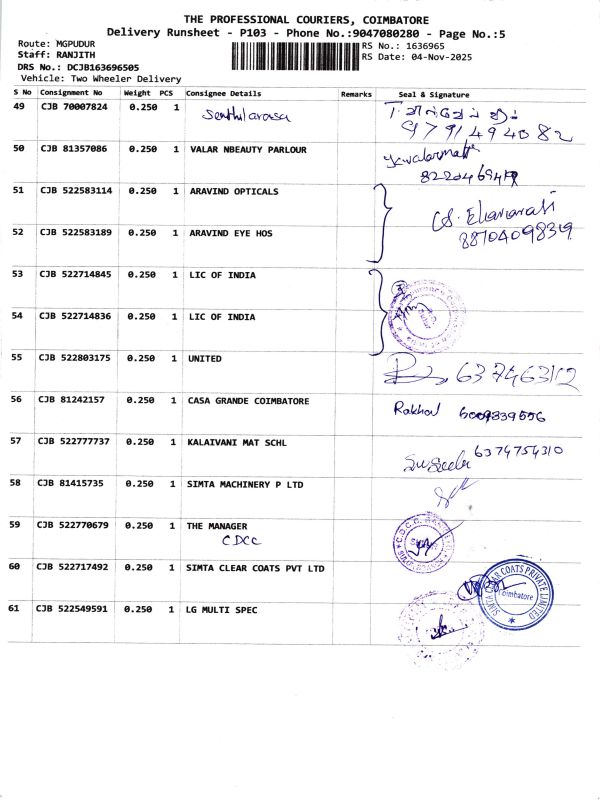 THE PROFESSIONAL COURIERS, COIMBATORE
Delivery Runsheet - P103 - Phone No.:9047080280 - Page No.:5
Route: MGPUDUR
RS No.: 1636965
Staff: RANJITH
RS Date: 04-Nov-2025
DRS No.: DCJB163696505
Vehicle: Two Wheeler Delivery
S No Consignment No Weight PCS Consignee Details Remarks Seal & Signature
49 CJB 70007824 0.250 1 Senthilarasa
9791494082
50 CJB 81357086 0.250 1 VALAR NBEAUTY PARLOUR
51 CJB 522583114 0.250 1 ARAVIND OPTICALS
52 CJB 522583189 0.250 1 ARAVIND EYE HOS
53 CJB 522714845 0.250 1 LIC OF INDIA
54 CJB 522714836 0.250 1 LIC OF INDIA
55 CJB 522803175 0.250 1 UNITED
56 CJB 81242157 0.250 1 CASA GRANDE COIMBATORE Rakhal 6009839556
57 CJB 522777737 0.250 1 KALAIVANI MAT SCHL Suseela 6374754310
58 CJB 81415735 0.250 1 SIMTA MACHINERY P LTD
59 CJB 522770679 0.250 1 THE MANAGER
CDCC
60 CJB 522717492 0.250 1 SIMTA CLEAR COATS PVT LTD
SIMTA CLEAR COATS PRIVATE LIMITED
Coimbatore
61 CJB 522549591 0.250 1 LG MULTI SPEC